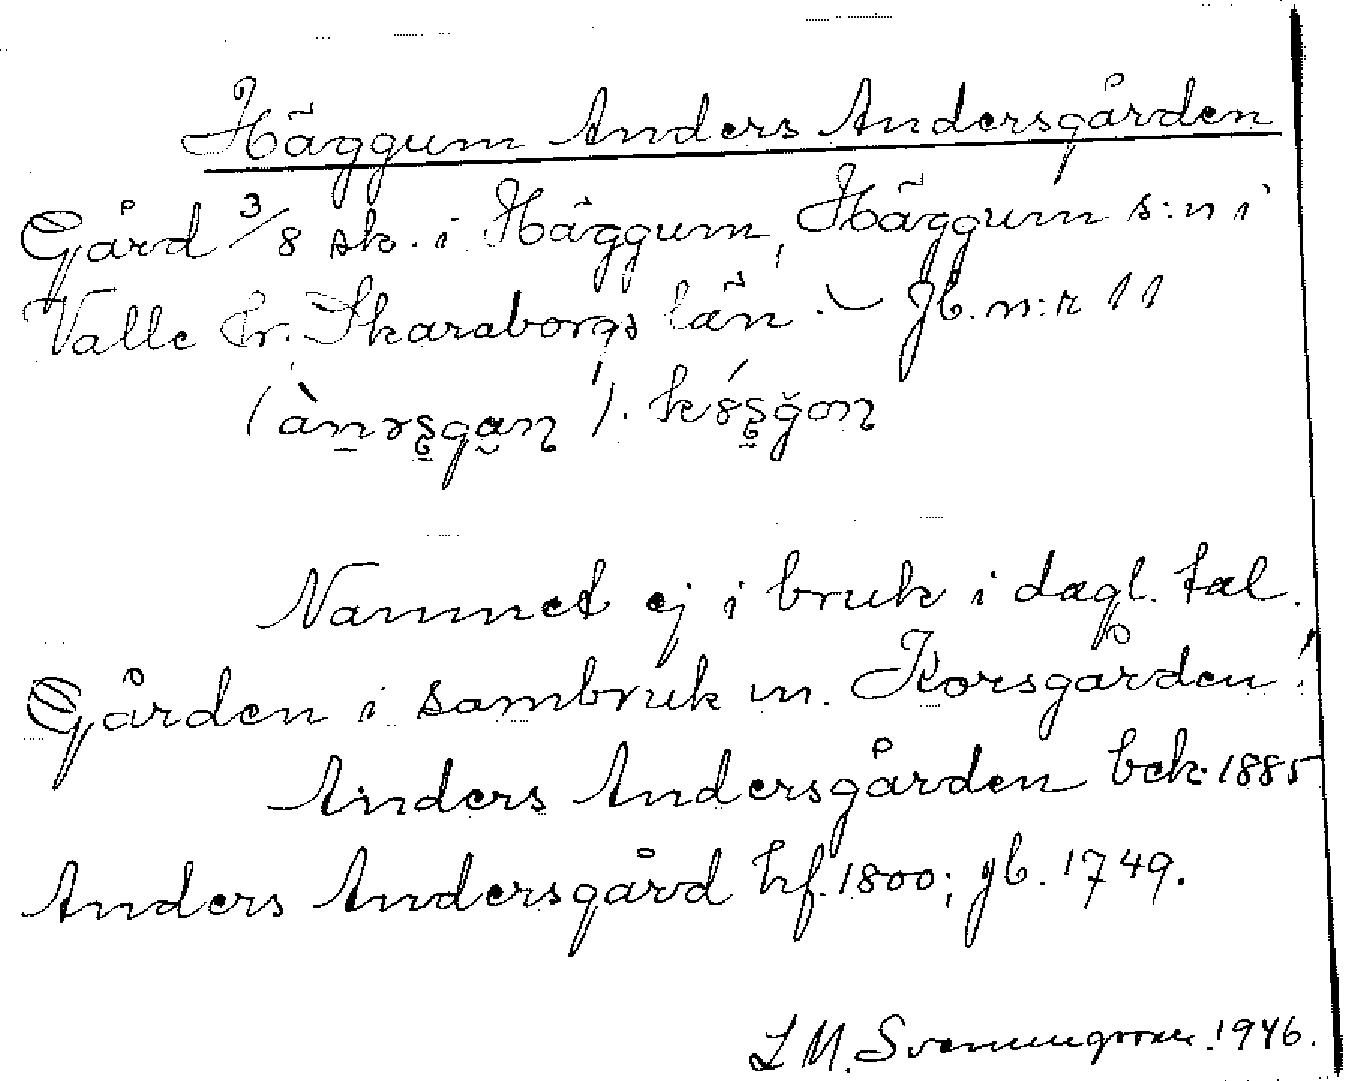 Häggum Anders Andersgården
Gård 3/8 sk. i Häggum, Häggum s:n i
Valle hr. Skaraborgs län. — Jb. n:r 11
Namnet ej i bruk i dagl. tal.
Gården i sambruk m. Korsgården!
Anders Andersgården bek. 1885
Anders Andersgård hf. 1800; jb. 1749.
L M. 1946.